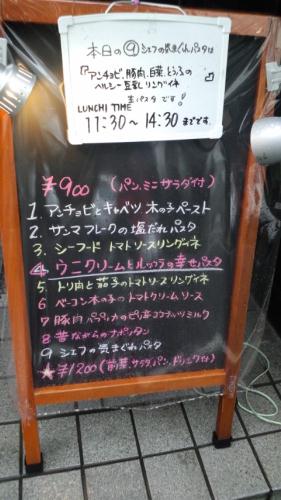 本日の⑨シェフの気まぐれパスタは
『アンチョビ、豚肉、白菜、とうふの
ヘルシー豆乳リングイネ
生パスタです!
LUNCH TIME
11:30〜14:30までです。
¥900 (パン、ミニサラダ付)
1. アンチョビとキャベツ、木の子ペースト
2. サンマフレークの塩だれパスタ
3. シーフードトマトソースリングイネ
4. ウニクリームとルッコラの幸せパスタ
5. トリ肉と茄子のトマトソースリングイネ
6 ベーコン木の子トマトクリームソース
7 豚肉パプリカのピリ辛ココナッツミルク
8 昔ながらのナポリタン
9 シェフの気まぐれパスタ
★¥1200(前菜、サラダ、パン、ドリンク付)